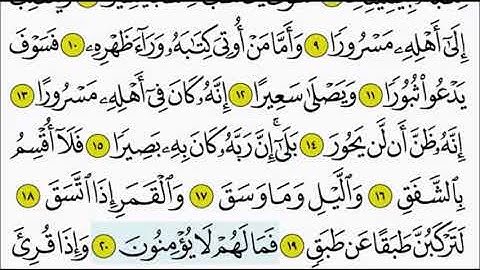 إِلَىٰٓ أَهْلِهِۦ مَسْرُورًا ٩ وَأَمَّا مَنْ أُوتِىَ كِتَٰبَهُۥ وَرَآءَ ظَهْرِهِۦ ١٠ فَسَوْفَ
يَدْعُوا۟ ثُبُورًا ١١ وَيَصْلَىٰ سَعِيرًا ١٢ إِنَّهُۥ كَانَ فِىٓ أَهْلِهِۦ مَسْرُورًا ١٣
إِنَّهُۥ ظَنَّ أَن لَّن يَحُورَ ١٤ بَلَىٰٓ إِنَّ رَبَّهُۥ كَانَ بِهِۦ بَصِيرًا ١٥ فَلَآ أُقْسِمُ
بِٱلشَّفَقِ ١٦ وَٱلَّيْلِ وَمَا وَسَقَ ١٧ وَٱلْقَمَرِ إِذَا ٱتَّسَقَ ١٨
لَتَرْكَبُنَّ طَبَقًا عَن طَبَقٍ ١٩ فَمَا لَهُمْ لَا يُؤْمِنُونَ ٢٠ وَإِذَا قُرِئَ